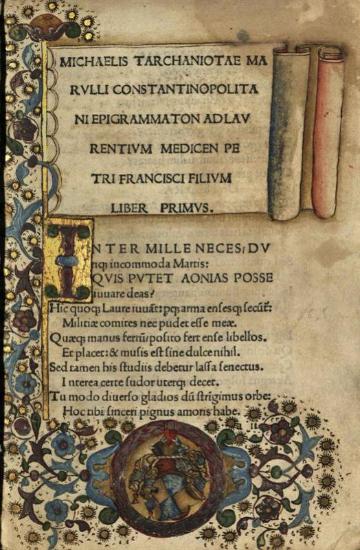 MICHAELIS TARCHANIOTAE MA
RVLLI CONSTANTINOPOLITA
NI EPIGRAMMATON AD LAV
RENTIVM MEDICEN PE
TRI FRANCISCI FILIVM
LIBER PRIMVS.
INTER MILLE NECES: DV
incommoda Martis:
QVIS PVTET AONIAS POSSE
iuuare deas?
Hic quoq; Laure iuuãt: pq; arma ensesq; secũt:
Militiæ comites nec pudet esse meæ.
Quæq; manus ferrũ posito fert ense libellos.
Et placet: & musis est sine dulce nihil.
Sed tamen his studiis debetur lassa senectus.
Interea certe sudor uterq; decet.
Tu modo diuerso gladios dũ strigimus orbe:
Hoc tibi sinceri pignus amoris habe.